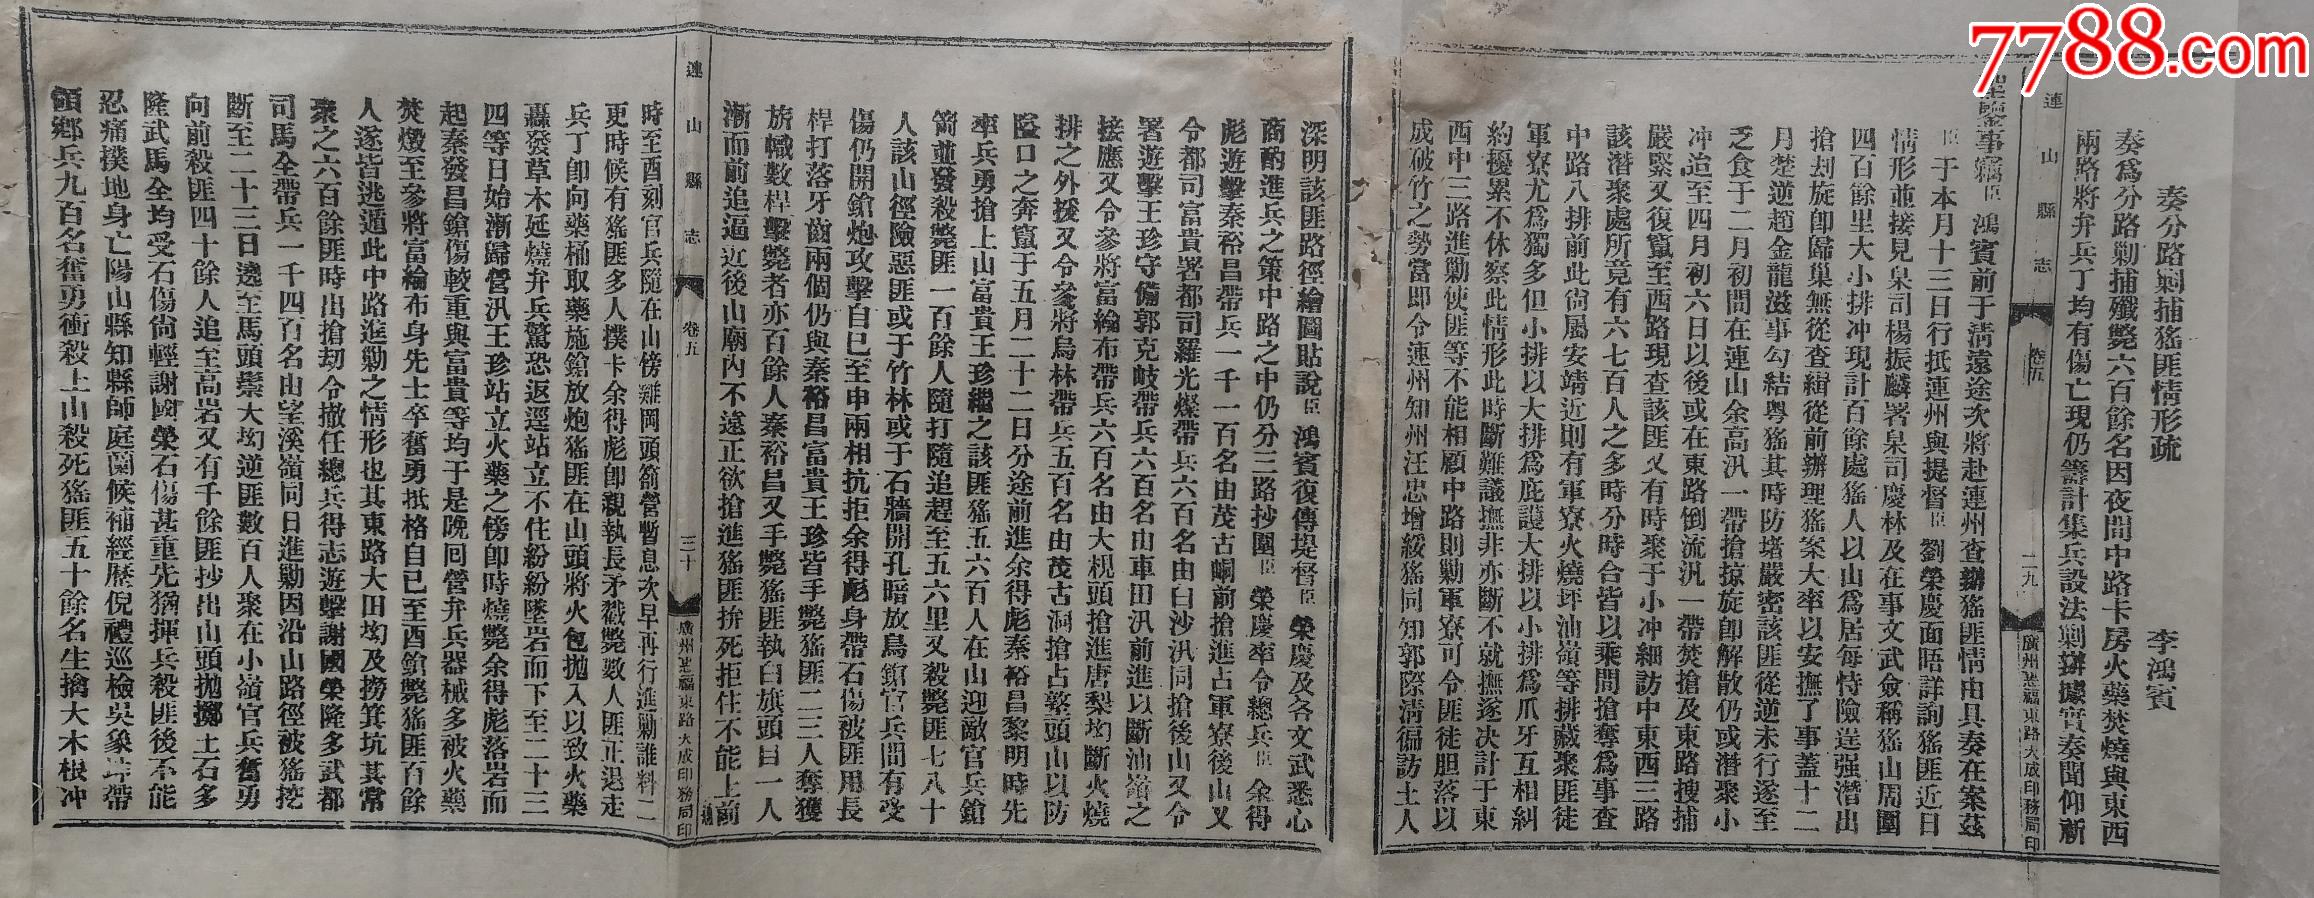 7788.com
奏分路剿捕猺匪情形疏　李鴻賓
奏爲分路剿捕殲斃六百餘名因夜間中路卡房火藥焚燒與東西
兩路將弁兵丁均有傷亡現仍籌計集兵設法剿辦據實奏聞仰祈
連山縣志　卷五　二九　廣州惠福東路大成印務局印
聖鑒事竊臣鴻賓前于清遠途次將赴連州查辦猺匪情由具奏在案茲
臣于本月十三日行抵連州與提督臣劉榮慶面晤詳詢猺匪近日
情形並接見臬司楊振麟署臬司慶林及在事文武僉稱猺山周圍
四百餘里大小排冲現計百餘處猺人以山爲居每恃險逞强潛出
搶刦旋卽歸巢無從查緝從前辦理猺案大率以安撫了事蓋十二
月楚逆趙金龍滋事勾結粵猺其時防堵嚴密該匪從逆未行遂至
乏食于二月初間在連山余高汛一帶搶掠旋卽解散仍或潛聚小
冲追至四月初六日以後或在東路倒流汛一帶焚搶及東路搜捕
嚴緊又復竄至西路現查該匪又有時聚于小冲細訪中東西三路
該潛聚處所竟有六七百人之多時分時合皆以乘間搶奪爲事查
中路八排前此尙屬安靖近則有軍寮火燒坪油嶺等排藏聚匪徒
軍寮尤爲獨多但小排以大排爲庇護大排以小排爲爪牙互相糾
約擾累不休察此情形此時斷難議撫非亦斷不就撫遂决計于東
西中三路進剿使匪等不能相顧中路則剿軍寮可令匪徒胆落以
成破竹之勢當即令連州知州汪忠增綏猺同知郭際淸徧訪土人
深明該匪路徑繪圖貼說臣鴻賓復傳堤督臣榮慶及各文武悉心
商酌進兵之策中路之中仍分三路抄圍臣榮慶率令總兵臣余得
彪遊擊秦裕昌帶兵一千一百名由茂古峒前搶進占軍寮後山又
令都司富貴署都司羅光燦帶兵六百名由白沙汛同搶後山又令
署遊擊王珍守備郭克岐帶兵六百名由車田汛前進以斷油嶺之
接應又令參將富綸布帶兵六百名由大梘頭搶進唐梨㘭斷火燒
排之外援又令參將烏林帶兵五百名由茂古洞搶占鰲頭山以防
隘口之奔竄于五月二十二日分途前進余得彪秦裕昌黎明時先
率兵勇搶上山富貴王珍繼之該匪猺五六百人在山迎敵官兵鎗
箭並發殺斃匪一百餘人隨打隨追趕至五六里又殺斃匪七八十
人該山徑險惡匪或于竹林或于石牆開孔暗放鳥鎗官兵間有受
傷仍開鎗炮攻擊自巳至申兩相抗拒余得彪身帶石傷被匪用長
桿打落牙齒兩個仍與秦裕昌富貴王珍皆手斃猺匪二三人奪獲
旂幟數桿擊斃者亦百餘人秦裕昌又手斃猺匪執白旗頭目一人
漸而前追逼近後山廟內不遠正欲搶進猺匪拚死拒住不能上前
連山縣志　卷五　三十　廣州惠福東路大成印務局印
時至酉刻官兵隨在山傍雞岡頭箚營暫息次早再行進剿誰料二
更時候有猺匪多人撲卡余得彪卽親執長矛戳斃數人匪正退走
兵丁卽向藥桶取藥施鎗放炮猺匪在山頭將火包拋入以致火藥
轟發草木延燒弁兵驚恐返逕站立不住紛紛墜岩而下至二十三
四等日始漸歸營汛王珍站立火藥之傍卽時燒斃余得彪落岩而
起秦發昌鎗傷較重與富貴等均于是晚囘營弁兵器械多被火藥
焚燬至參將富綸布身先士卒奮勇抵格自已至酉鎗斃猺匪百餘
人遂皆逃遁此中路進剿之情形也其東路大田㘭及撈箕坑其常
聚之六百餘匪時出搶刧令撤任總兵得志遊擊謝國榮隆多武都
司馬全帶兵一千四百名由望溪嶺同日進剿因沿山路徑被猺挖
斷至二十三日遶至馬頭鬃大㘭逆匪數百人聚在小嶺官兵奮勇
向前殺匪四十餘人追至高岩又有千餘匪抄出山頭拋擲土石多
隆武馬全均受石傷尙輕謝國榮石傷甚重先猶揮兵殺匪後不能
忍痛撲地身亡陽山縣知縣師庭蘭候補經歷倪禮巡檢吳象坤帶
領鄉兵九百名奮勇衝殺上山殺死猺匪五十餘名生擒大木根冲